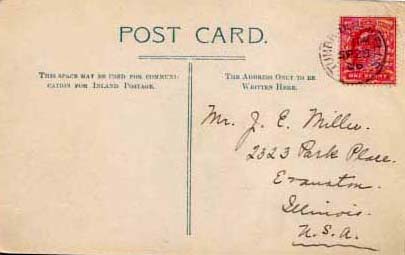 POST CARD.
THIS SPACE MAY BE USED FOR COMMUNI-
CATION FOR INLAND POSTAGE.
THE ADDRESS ONLY TO BE
WRITTEN HERE.
ONE PENNY
Mr. J. C. Miller.
2323 Park Place.
Evanston.
Illinois.
U.S.A.